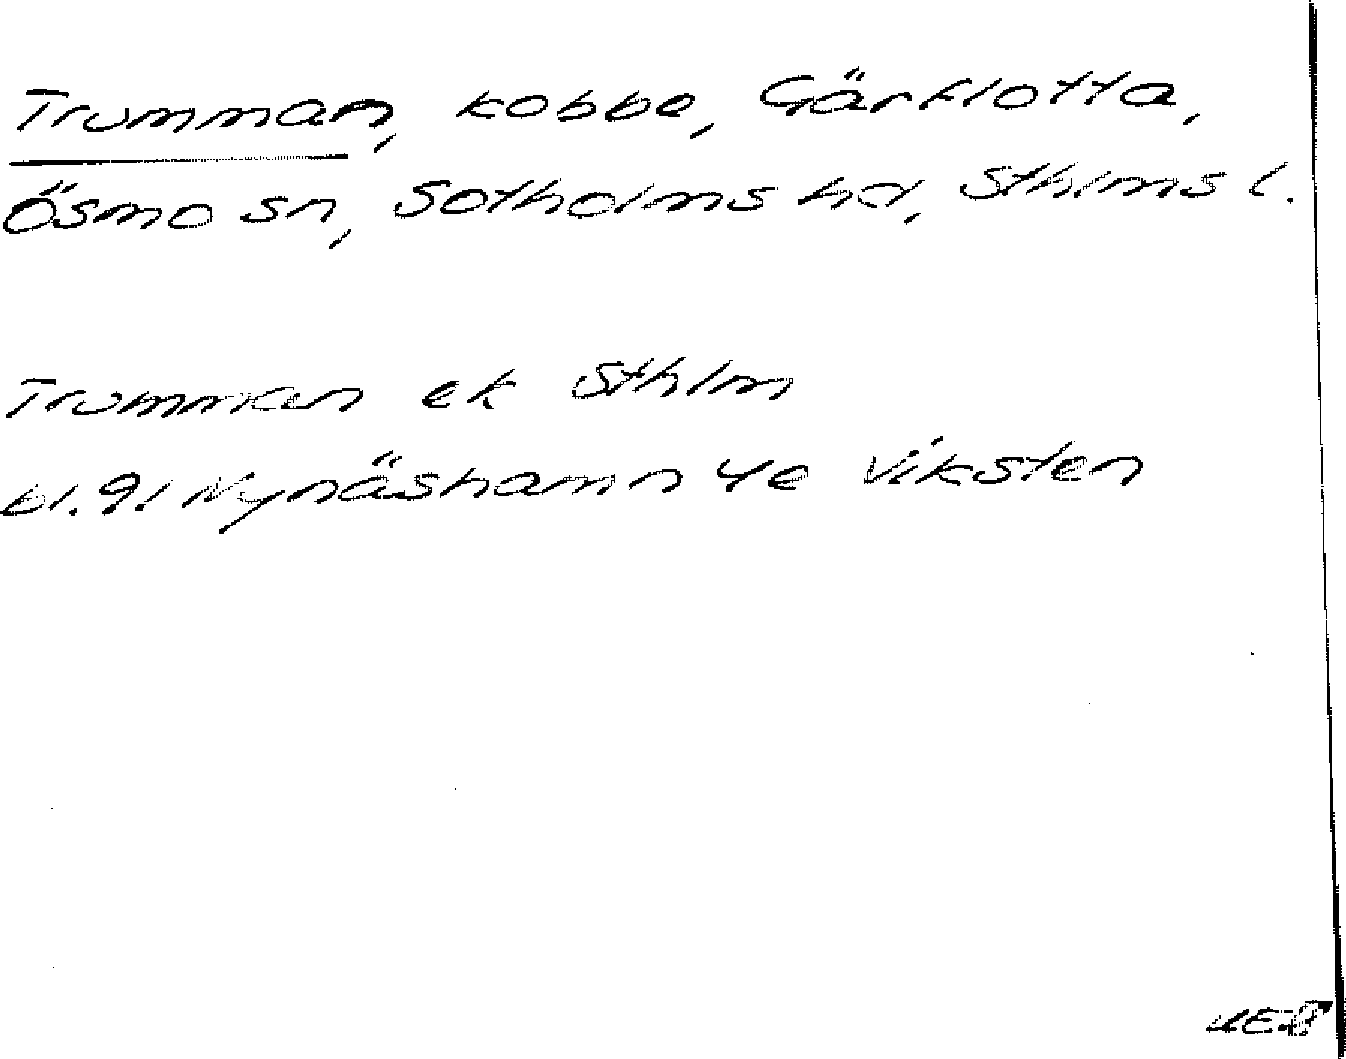 Trumman, kobbe, Gärflotta,
Ösmo sn, Sotholms hd, Sthlms l.
Trumman ek Sthlm
bl. 91 Nynäshamn 4e Viksten